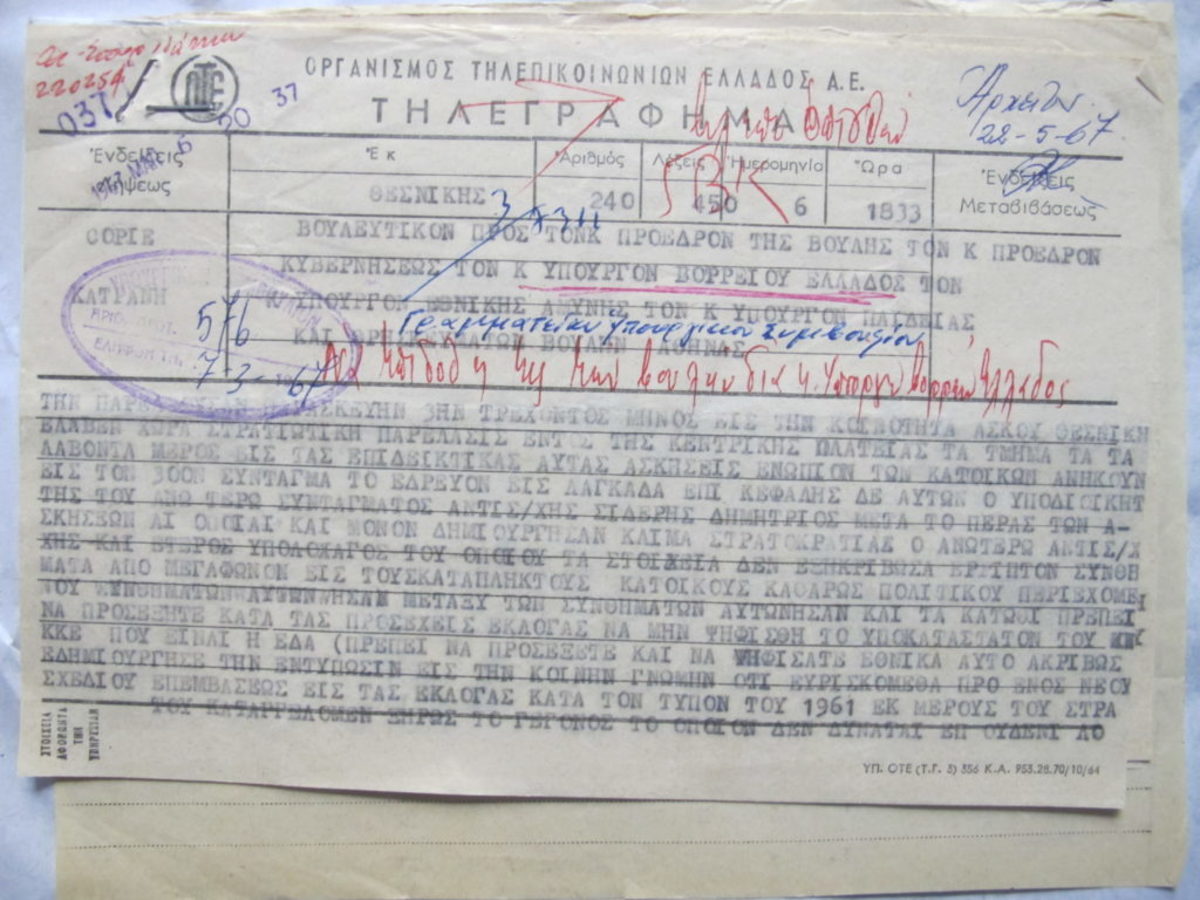 220254
037
ΟΤΕ
20 37
ΟΡΓΑΝΙΣΜΟΣ ΤΗΛΕΠΙΚΟΙΝΩΝΙΩΝ ΕΛΛΑΔΟΣ Α.Ε.
ΤΗΛΕΓΡΑΦΗΜΑ
22-5-67
Ἐνδείξεις
Ἐκ
Ἀριθμός
Λέξεις
Ἡμερομηνία
Ὥρα
Ἐνδείξεις
Μεταβιβάσεως
ΘΕΣΝΙΚΗΣ 3
240
450
6
1833
ΒΟΥΛΕΥΤΙΚΟΝ ΠΡΟΣ ΤΟΝΚ ΠΡΟΕΔΡΟΝ ΤΗΣ ΒΟΥΛΗΣ ΤΟΝ Κ ΠΡΟΕΔΡΟΝ
ΚΥΒΕΡΝΗΣΕΩΣ ΤΟΝ Κ ΥΠΟΥΡΓΟΝ ΒΟΡΡΕΙΟΥ ΕΛΛΑΔΟΣ ΤΟΝ
ΚΑΤΡΑΝΗ
Κ ΥΠΟΥΡΓΟΝ ΕΘΝΙΚΗΣ ΑΜΥΝΗΣ ΤΟΝ Κ ΥΠΟΥΡΓΟΝ ΠΑΙΔΕΙΑΣ
576
Γραμματείαν Ὑπουργικοῦ Συμβουλίου
ΚΑΙ ΘΡΗΣΚΕΥΜΑΤΩΝ ΒΟΥΛΗΝ ΑΘΗΝΑΣ
7 3-67
ΤΗΝ ΠΑΡΕΛΘΟΥΣΑΝ ΠΑΡΑΣΚΕΥΗΝ 3ΗΝ ΤΡΕΧΟΝΤΟΣ ΜΗΝΟΣ ΕΙΣ ΤΗΝ ΚΟΙΝΟΤΗΤΑ ΑΣΚΟΥ ΘΕΣΝΙΚΗ
ΕΛΑΒΕΝ ΧΩΡΑ ΣΤΡΑΤΙΩΤΙΚΗ ΠΑΡΕΛΑΣΙΣ ΕΝΤΟΣ ΤΗΣ ΚΕΝΤΡΙΚΗΣ ΠΛΑΤΕΙΑΣ ΤΑ ΤΜΗΜΑ ΤΑ ΤΑ
ΛΑΒΟΝΤΑ ΜΕΡΟΣ ΕΙΣ ΤΑΣ ΕΠΙΔΕΙΚΤΙΚΑΣ ΑΥΤΑΣ ΑΣΚΗΣΕΙΣ ΕΝΩΠΙΟΝ ΤΩΝ ΚΑΤΟΙΚΩΝ ΑΝΗΚΟΥΝ
ΕΙΣ ΤΟΝ 300Ν ΣΥΝΤΑΓΜΑ ΤΟ ΕΔΡΕΥΟΝ ΕΙΣ ΛΑΓΚΑΔΑ ΕΠΙ ΚΕΦΑΛΗΣ ΔΕ ΑΥΤΩΝ Ο ΥΠΟΔΙΟΙΚΗΤ
ΤΗΣ ΤΟΥ ΑΝΩ ΤΕΡΩ ΣΥΝΤΑΓΜΑΤΟΣ ΑΝΤΙΣ/ΧΗΣ ΣΙΔΕΡΗΣ ΔΗΜΗΤΡΙΟΣ ΜΕΤΑ ΤΟ ΠΕΡΑΣ ΤΩΝ Α-
ΣΚΗΣΕΩΝ ΑΙ ΟΠΟΙΑΙ ΚΑΙ ΜΟΝΟΝ ΔΗΜΙΟΥΡΓΗΣΑΝ ΚΛΙΜΑ ΣΤΡΑΤΟΚΡΑΤΙΑΣ Ο ΑΝΩΤΕΡΩ ΑΝΤΙΣ/Χ
ΧΗΣ ΚΑΙ ΕΤΕΡΟΣ ΥΠΟΛΟΧΑΓΟΣ ΤΟΥ ΟΠΟΙΟΥ ΤΑ ΣΤΟΙΧΕΙΑ ΔΕΝ ΕΞΗΚΡΙΒΩΣΑ ΕΡΡΙΠΤΟΝ ΣΥΝΘΗ
ΜΑΤΑ ΑΠΟ ΜΕΓΑΦΩΝΟΝ ΕΙΣ ΤΟΥΣΚΑΤΑΠΛΗΚΤΟΥΣ ΚΑΤΟΙΚΟΥΣ ΚΑΘΑΡΩΣ ΠΟΛΙΤΙΚΟΥ ΠΕΡΙΕΧΟΜΕ
ΝΟΥ ΣΥΝΘΗΜΑΤΩΝ ΑΥΤΩΝ ΗΣΑΝ ΜΕΤΑΞΥ ΤΩΝ ΣΥΝΘΗΜΑΤΩΝ ΑΥΤΩΝΗΣΑΝ ΚΑΙ ΤΑ ΚΑΤΩΘΙ ΠΡΕΠΕΙ
ΝΑ ΠΡΟΣΕΞΗΤΕ ΚΑΤΑ ΤΑΣ ΠΡΟΣΕΧΕΙΣ ΕΚΛΟΓΑΣ ΝΑ ΜΗΝ ΨΗΦΙΣΘΗ ΤΟ ΥΠΟΚΑΤΑΣΤΑΤΟΝ ΤΟΥ
ΚΚΕ ΠΟΥ ΕΙΝΑΙ Η ΕΔΑ (ΠΡΕΠΕΙ ΝΑ ΠΡΟΣΕΞΕΤΕ ΚΑΙ ΝΑ ΨΗΦΙΣΑΤΕ ΕΘΝΙΚΑ ΑΥΤΟ ΑΚΡΙΒΩΣ
ΕΔΗΜΙΟΥΡΓΗΣΕ ΤΗΝ ΕΝΤΥΠΩΣΙΝ ΕΙΣ ΤΗΝ ΚΟΙΝΗΝ ΓΝΩΜΗΝ ΟΤΙ ΕΥΡΙΣΚΟΜΕΘΑ ΠΡΟ ΕΝΟΣ ΝΕΟΥ
ΣΧΕΔΙΟΥ ΕΠΕΜΒΑΣΕΩΣ ΕΙΣ ΤΑΣ ΕΚΛΟΓΑΣ ΚΑΤΑ ΤΟΝ ΤΥΠΟΝ ΤΟΥ 1961 ΕΚ ΜΕΡΟΥΣ ΤΟΥ ΣΤΡΑ
ΤΟΥ ΚΑΤΑΓΓΕΛΟΜΕΝ ΞΗΡΩΣ ΤΟ ΓΕΓΟΝΟΣ ΤΟ ΟΠΟΙΟΝ ΔΕΝ ΔΥΝΑΤΑΙ ΕΠ ΟΥΔΕΝΙ ΛΟ
ΣΤΟΙΧΕΙΑ
ΑΦΟΡΩΝΤΑ
ΤΗΝ
ΥΠΗΡΕΣΙΑΝ
ΥΠ. ΟΤΕ (Τ.Γ. 3) 356 Κ.Α. 953.28.70/10/64